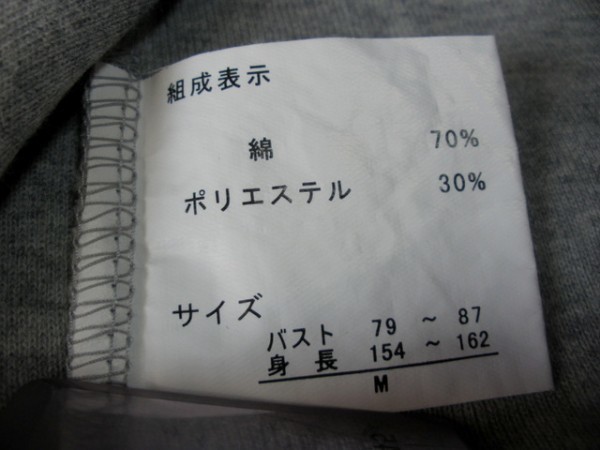 組成表示
綿 70%
ポリエステル 30%
サイズ
バスト 79 ~ 87
身長 154 ~ 162
M